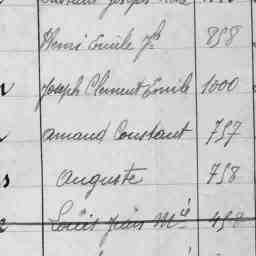 Henri Emile Jh 898
Joseph Clément Emile 1000
Amand Constant 757
Auguste 758
Louis Jean Mie